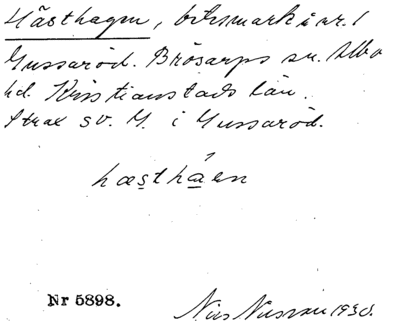 Hästhagen, betesmark i nr. 1
Gussaröd. Brösarps sn. Albo
hd. Kristianstads län.
Strax sv. G. i Gussaröd.
hæsthàen
Nr 5898.
Nils Nilsson 1930.